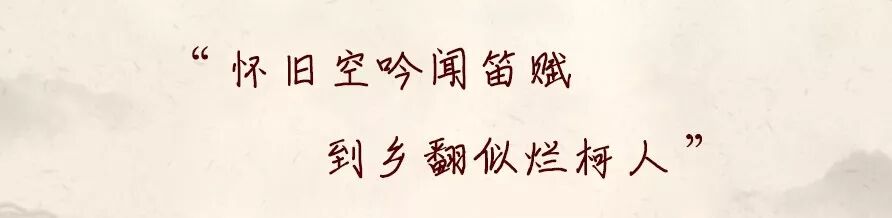 “怀旧空吟闻笛赋
到乡翻似烂柯人”